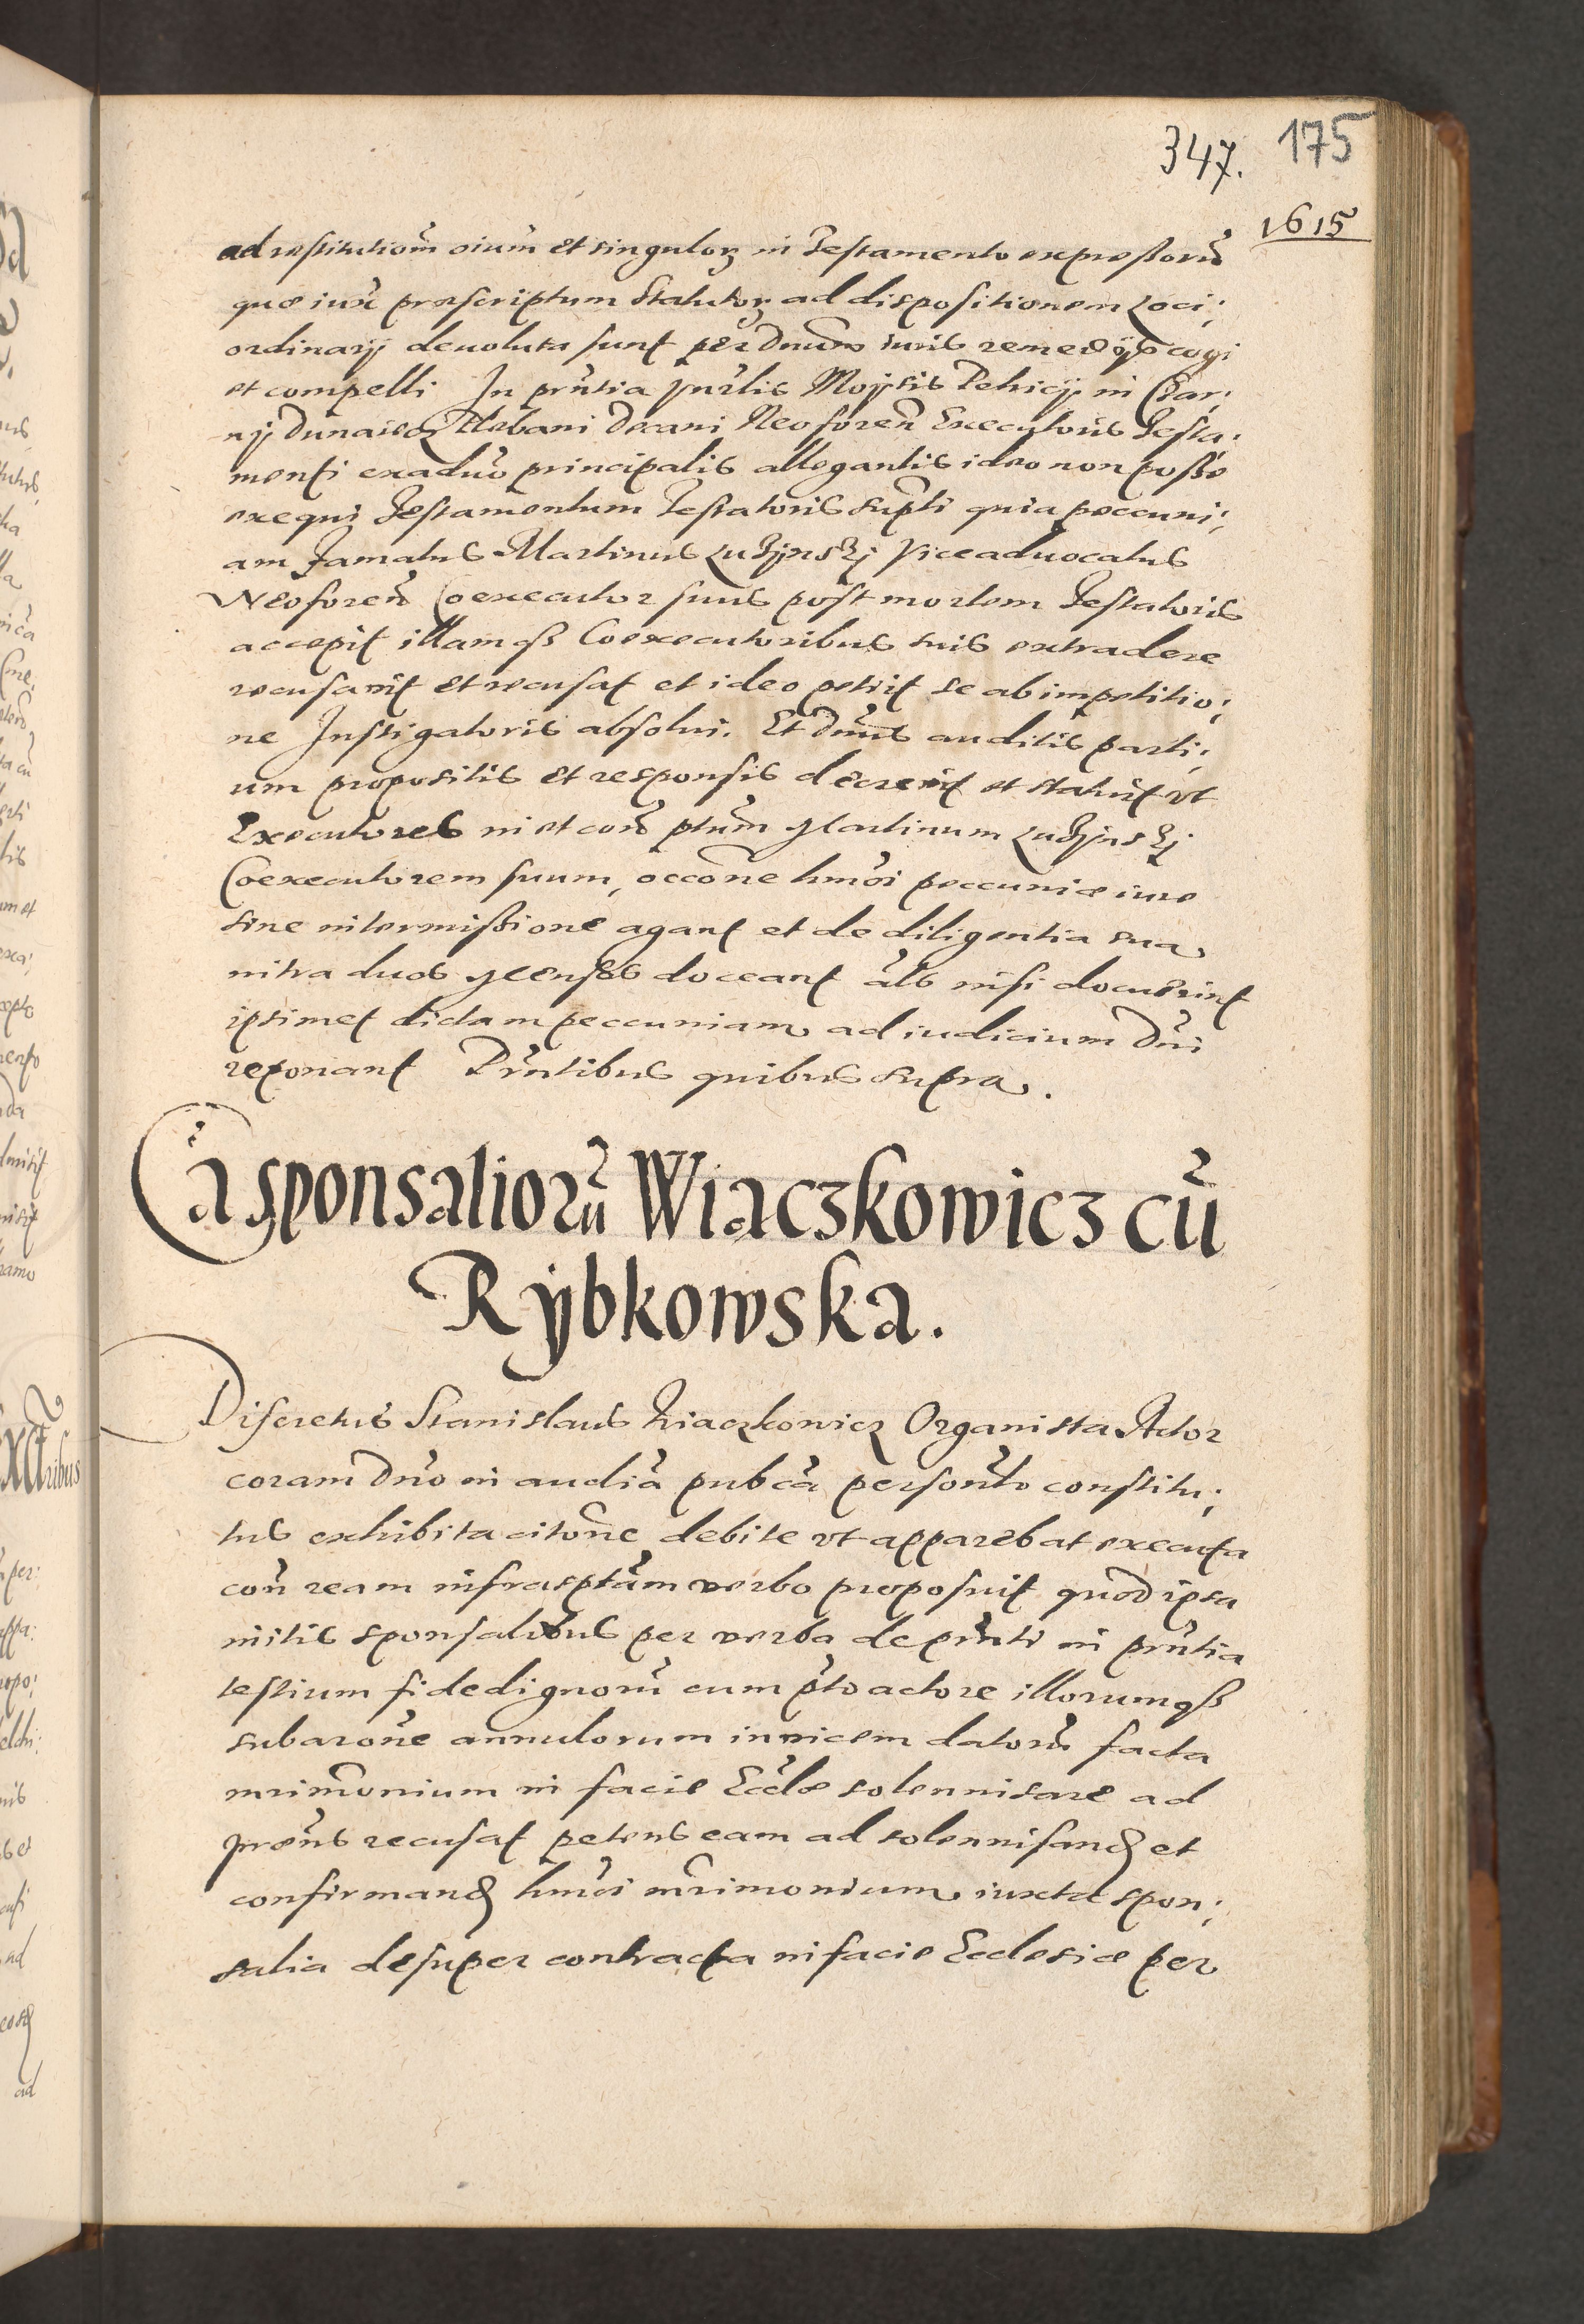 347. 175
1615
ad restitutiom̃ oium̃ et singuloꝝ in Testamento expressorũ
quæ iux̃ præscriptum Statutoꝝ ad dispositionem Loci;
ordinarij deuoluta sunt per Dnum̃ iuris remedijs cogi
et compelli In pñtia Hnrlis Moijsis Pehicij in Czar;
nij Dunaiecz Plebani Decani Neoforeñ Executoris Testa;
menti exaduõ principalis allegantis ideo non posse
exequi Testamentum Testatoris supti quia peccuni;
am Famatus Martinus Viceaduocatus
Neoforeñ Coexecutor suus post mortem Testatoris
accepit illamqß Coexecutoribus suis extradere
recusauit et recusat et ideo petiit se ab impetitio;
ne Instigatoris absolui. Et Dnũs auditis parti;
um propositis et responsis decreuit et statuit vt
Executores in et coñ ptum̃ Martinum
Coexecutorem suum, occõne hmõi peccuniæ iure
sine intermissione agant et de diligentia sua
intra duos Menses doceant als̃ nisi docuerint
ipsimet dictam peccuniam ad iudicium Dñi
reponant Pñtibus quibus supra.
Cã sponsaliorũ Wiączkowicz cũ
Rÿbkowska.
Discretus Stanislaus Wiączkowicz Organista Actor
coram Dño in audiã pubcã personlr̃ constitu;
tus exhibita citõne debite vt apparebat executa
coñ ream infrasptãm verbo proposuit quod ipsa
initis sponsalibus per verba de pñti in pñtia
testium fide dignorũ cum pto actore illorumqß
subarõne annulorum inuicem datorũ facta
mrim̃onium in facie Ecclæ solennisare ad
præns̃ recusat petens eam ad solennisand et
confirmand hmõi mr̃imonium iuxta spon;
salia desuper contracta in facie Ecclesiæ per